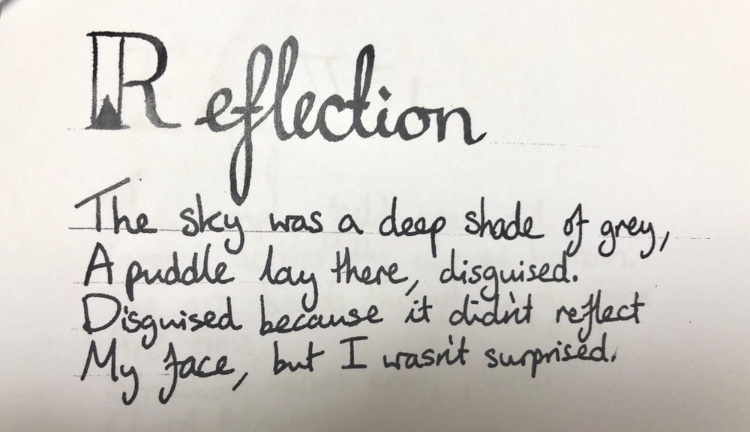 Reflection
The sky was a deep shade of grey,
A puddle lay there, disguised.
Disguised because it didn't reflect
My face, but I wasn't surprised.